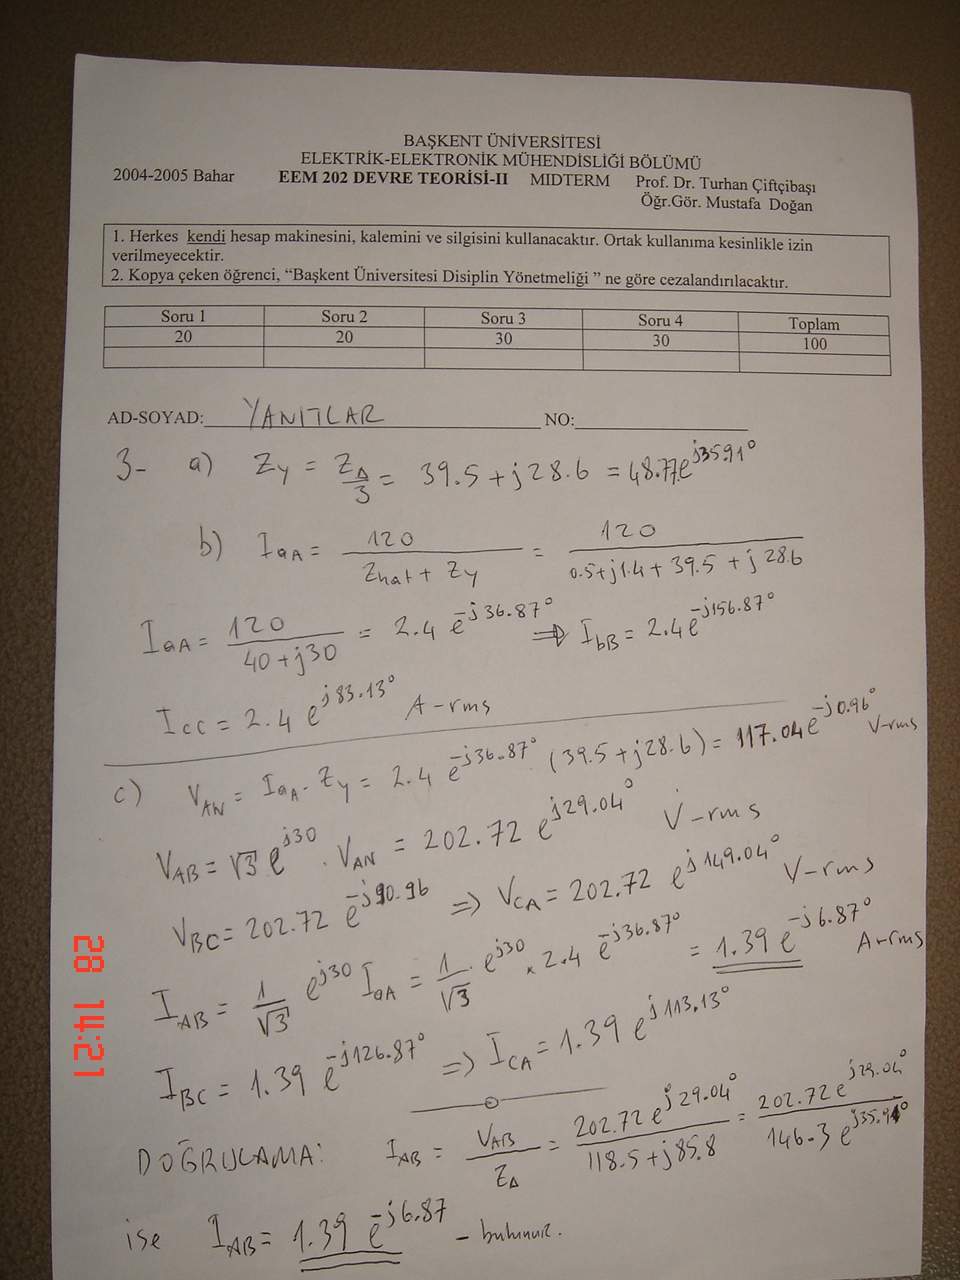 BAŞKENT ÜNİVERSİTESİ
ELEKTRİK-ELEKTRONİK MÜHENDİSLİĞİ BÖLÜMÜ
2004-2005 Bahar EEM 202 DEVRE TEORİSİ-II MIDTERM Prof. Dr. Turhan Çiftçibaşı
Öğr.Gör. Mustafa Doğan
1. Herkes kendi hesap makinesini, kalemini ve silgisini kullanacaktır. Ortak kullanıma kesinlikle izin
verilmeyecektir.
2. Kopya çeken öğrenci, “Başkent Üniversitesi Disiplin Yönetmeliği ” ne göre cezalandırılacaktır.
Soru 1 Soru 2 Soru 3 Soru 4 Toplam
20 20 30 30 100
AD-SOYAD: YANITLAR NO:
3- a) Z_Y = Z_Δ/3 = 39.5 + j28.6 = 48.77e^{j35.91°}
b) I_aA = 120/(Z_hat + Z_Y) = 120/(0.5+j1.4 + 39.5 + j28.6)
I_aA = 120/(40+j30) = 2.4 e^{-j36.87°} ⇒ I_bB = 2.4e^{-j156.87°}
I_cC = 2.4 e^{j83.13°} A-rms
c) V_AN = I_aA . Z_Y = 2.4 e^{-j36.87°} (39.5+j28.6) = 117.04e^{-j0.96°} V-rms
V_AB = √3 e^{j30} . V_AN = 202.72 e^{j29.04°} V-rms
V_BC = 202.72 e^{-j90.96} ⇒ V_CA = 202.72 e^{j149.04°} V-rms
I_AB = 1/√3 e^{j30} I_aA = 1/√3 . e^{j30} × 2.4 e^{-j36.87°} = 1.39 e^{-j6.87°} A-rms
I_BC = 1.39 e^{-j126.87°} ⇒ I_CA = 1.39 e^{j113.13°}
DOĞRULAMA: I_AB = V_AB/Z_Δ = 202.72 e^{j29.04°}/(118.5+j85.8) = 202.72 e^{j29.04°}/(146.3 e^{j35.91°})
ise I_AB = 1.39 e^{-j6.87} - bulunur.
28 14:21